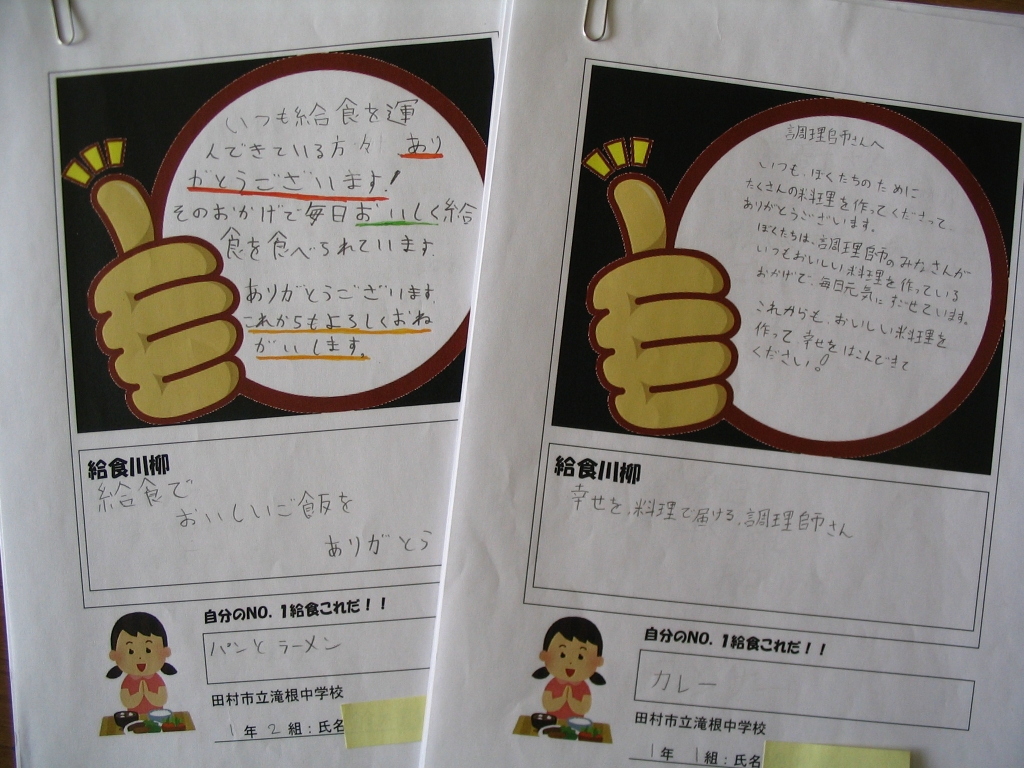 いつも給食を運
んできている方々 あり
がとうございます!
そのおかげで毎日おいしく給
食を食べられています。
ありがとうございます。
これからもよろしくおね
がいします。
給食川柳
給食で
おいしいご飯を
ありがとう
自分のNO.1給食これだ！！
パンとラーメン
田村市立滝根中学校
1年 2組：氏名
調理師さんへ
いつも、ぼくたちのために
たくさんの料理を作ってくださって、
ありがとうございます。
ぼくたちは、調理師のみなさんが
いつもおいしい料理を作っている
おかげで、毎日元気にすごせています。
これからも、おいしい料理を
作って幸せをはこんできて
ください!!
給食川柳
幸せを、料理で届ける、調理師さん
自分のNO.1給食これだ！！
カレー
田村市立滝根中学校
1年 1組：氏名